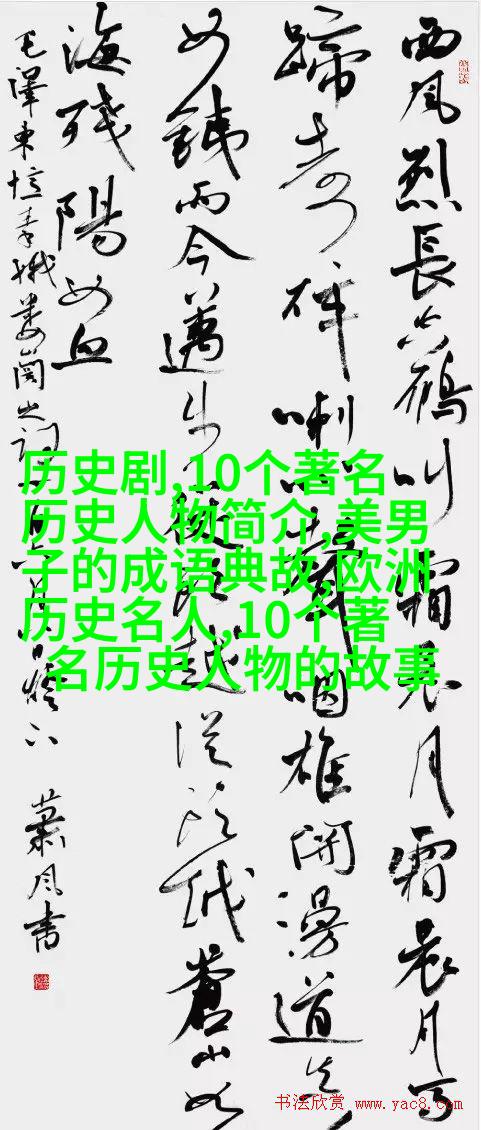 西风烈長空雁叫霜晨月霜晨月馬
蹄声碎喇叭聲咽雄関漫道真
如鐵而今邁步從頭越從頭越蒼山如
海残陽如血
毛澤東憶秦娥娄山関之詞
蕭风書
历史剧,10个著名
历史人物简介,美男
子的成语典故,欧洲
历史名人,10个著
名历史人物的故事
书法欣赏 www.yac8.com